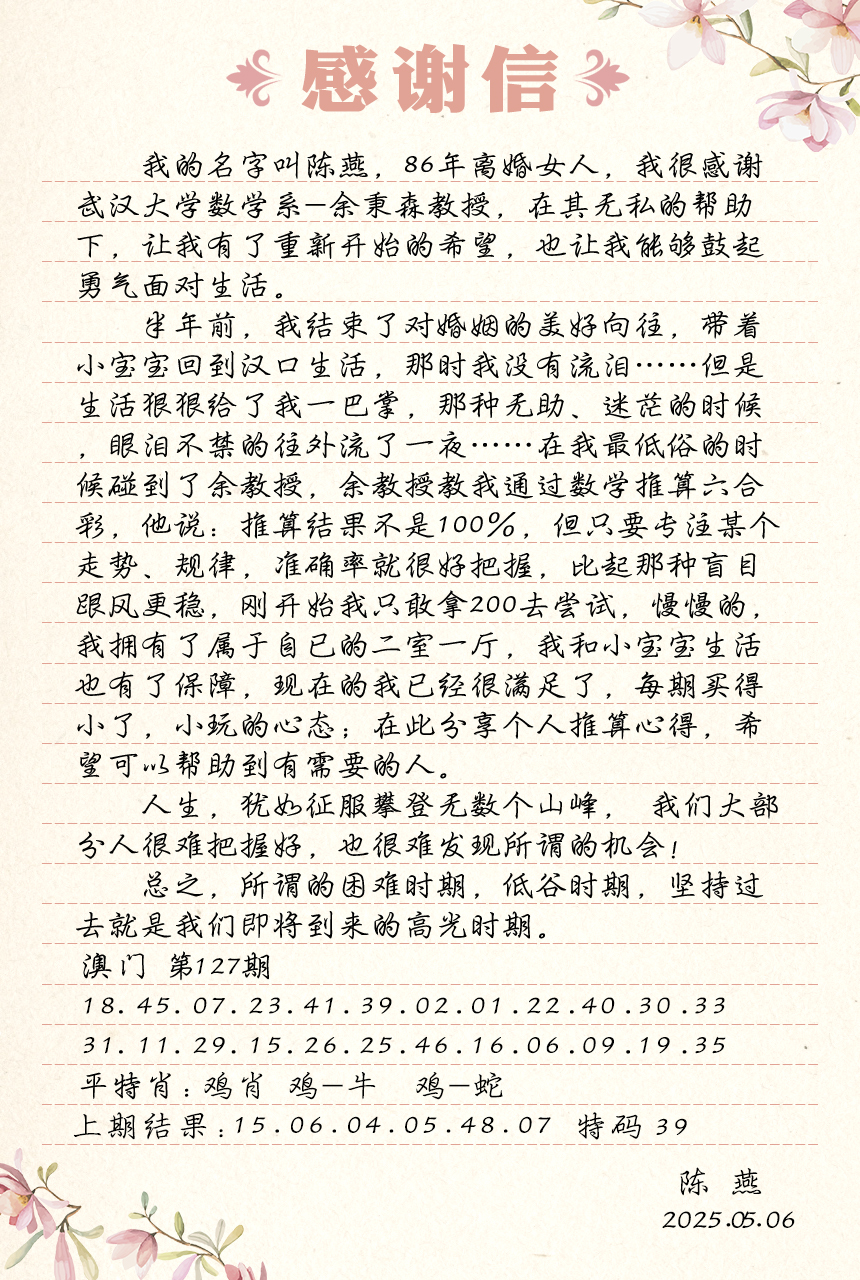 感谢信
我的名字叫陈燕，86年离婚女人，我很感谢
武汉大学数学系—余秉森教授，在其无私的帮助
下，让我有了重新开始的希望，也让我能够鼓起
勇气面对生活。
半年前，我结束了对婚姻的美好向往，带着
小宝宝回到汉口生活，那时我没有流泪……但是
生活狠狠给了我一巴掌，那种无助、迷茫的时候
，眼泪不禁的往外流了一夜……在我最低俗的时
候碰到了余教授，余教授教我通过数学推算六合
彩，他说：推算结果不是100%，但只要专注某个
走势、规律，准确率就很好把握，比起那种盲目
跟风更稳，刚开始我只敢拿200去尝试，慢慢的，
我拥有了属于自已的二室一厅，我和小宝宝生活
也有了保障，现在的我已经很满足了，每期买得
小了，小玩的心态；在此分享个人推算心得，希
望可以帮助到有需要的人。
人生，犹如征服攀登无数个山峰， 我们大部
分人很难把握好，也很难发现所谓的机会！
总之，所谓的困难时期，低谷时期，坚持过
去就是我们即将到来的高光时期。
澳门 第127期
18.45.07.23.41.39.02.01.22.40.30.33
31.11.29.15.26.25.46.16.06.09.19.35
平特肖：鸡肖 鸡—牛 鸡—蛇
上期结果：15.06.04.05.48.07 特码 39
陈 燕
2025.05.06